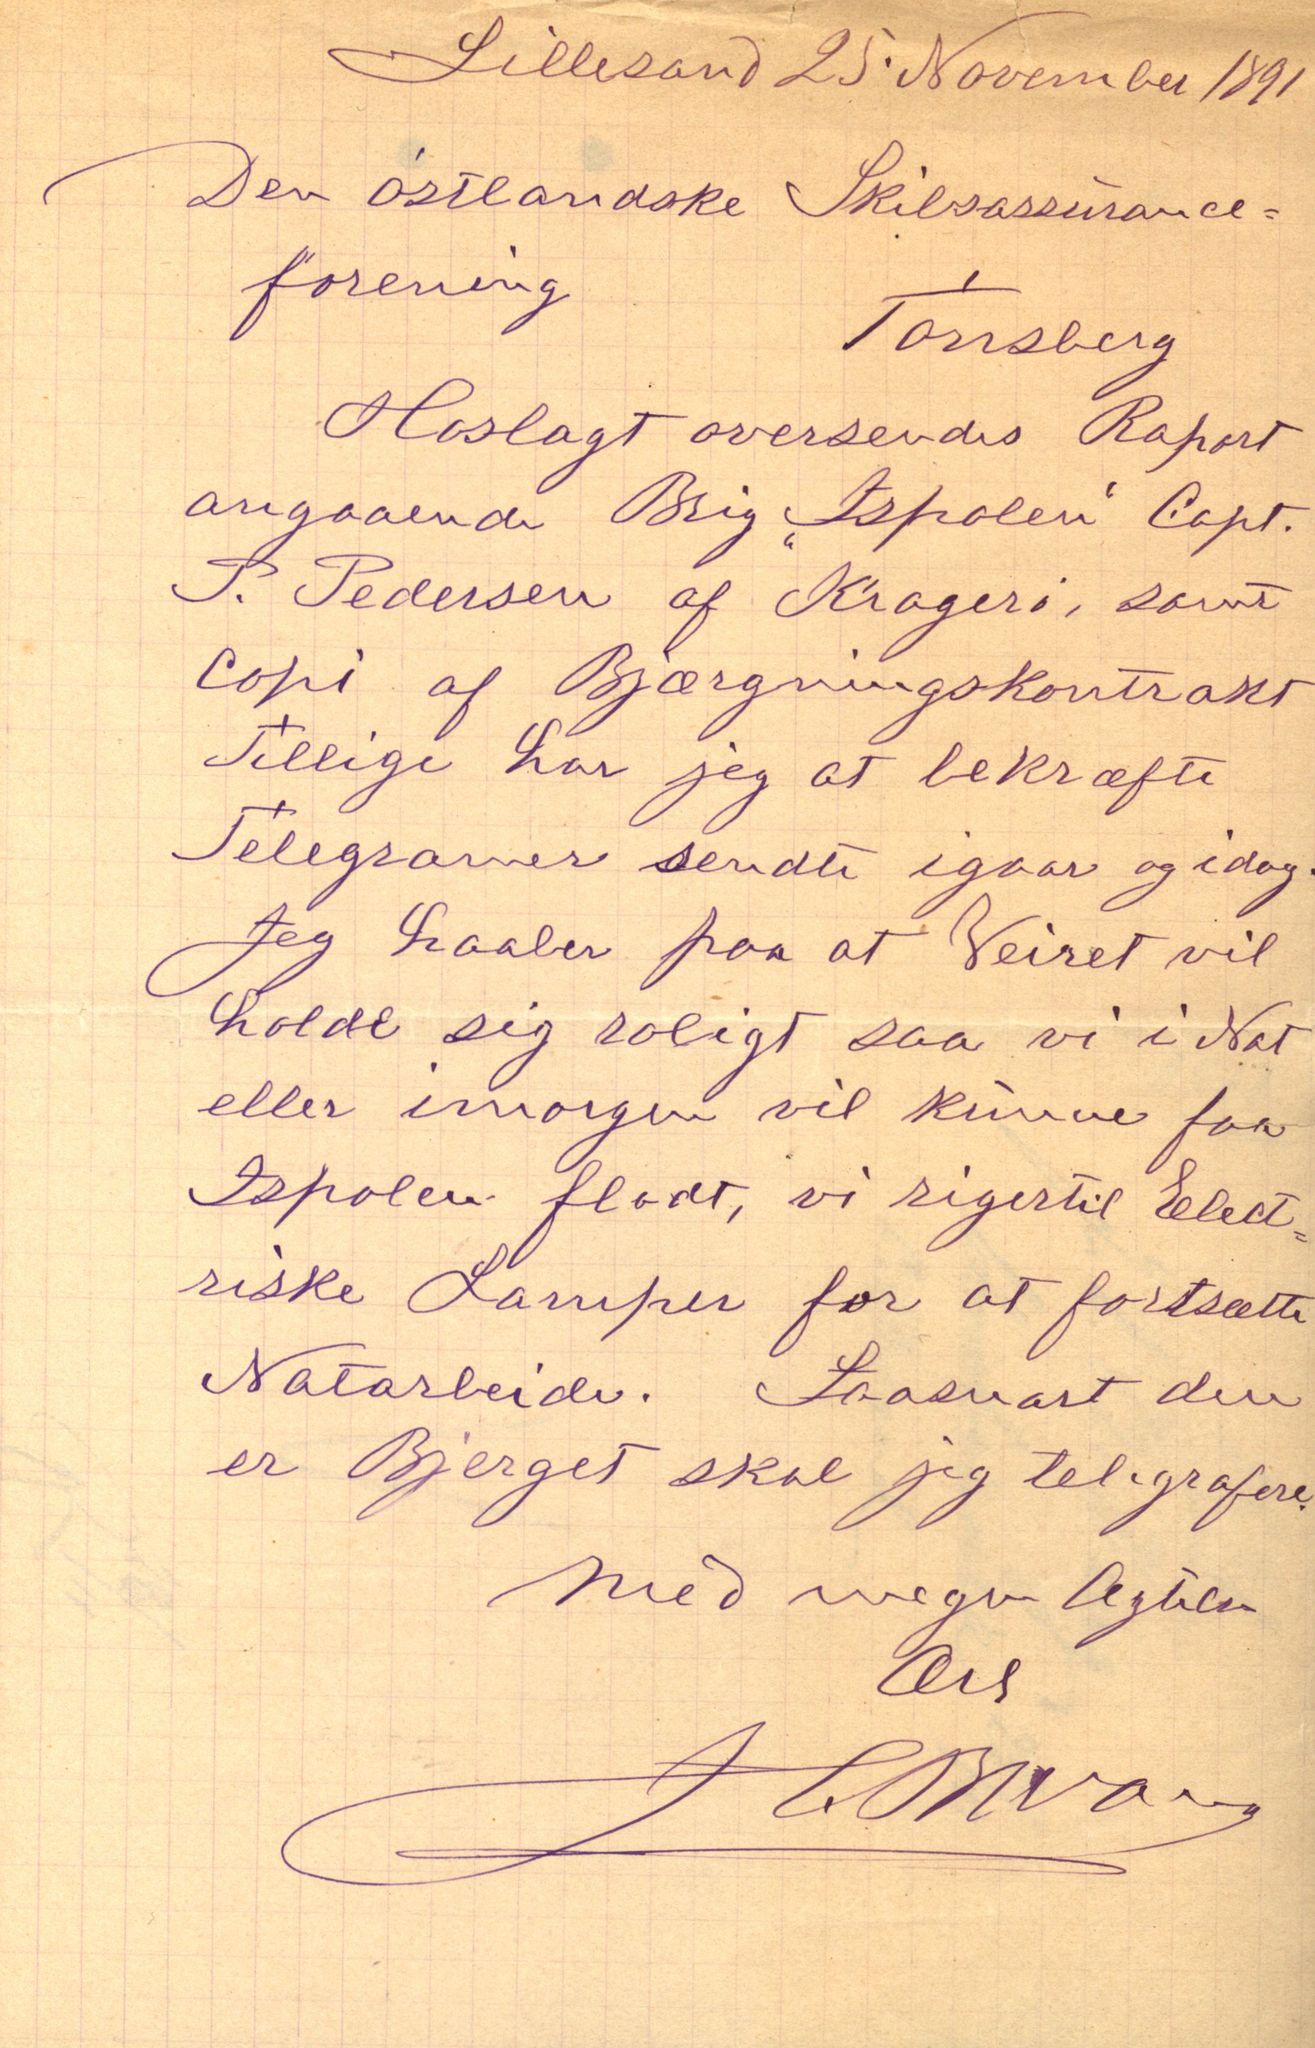 Lillesand 25. November 1891
Den östlandske Skibsassürance=
forening
Tönsberg
Hoslagt oversendes Raport
angaaende Brig „Ispolen“ Capt.
P. Pedersen af Kragerö, samt
Copi af Bjærgningskontrakt
Tillige har jeg at bekræfte
Telegramer sendte igaar og idag.
Jeg haaber paa at Veiret vil
holde sig roligt saa vi i Nat
eller imorgen vil künne faa
Ispolen flodt, vi riger til Elect=
riske Lamper for at fortsætte
Natarbeide. Saasnart den
er Bjerget skal jeg telegrafere.
Med megen Agtelse